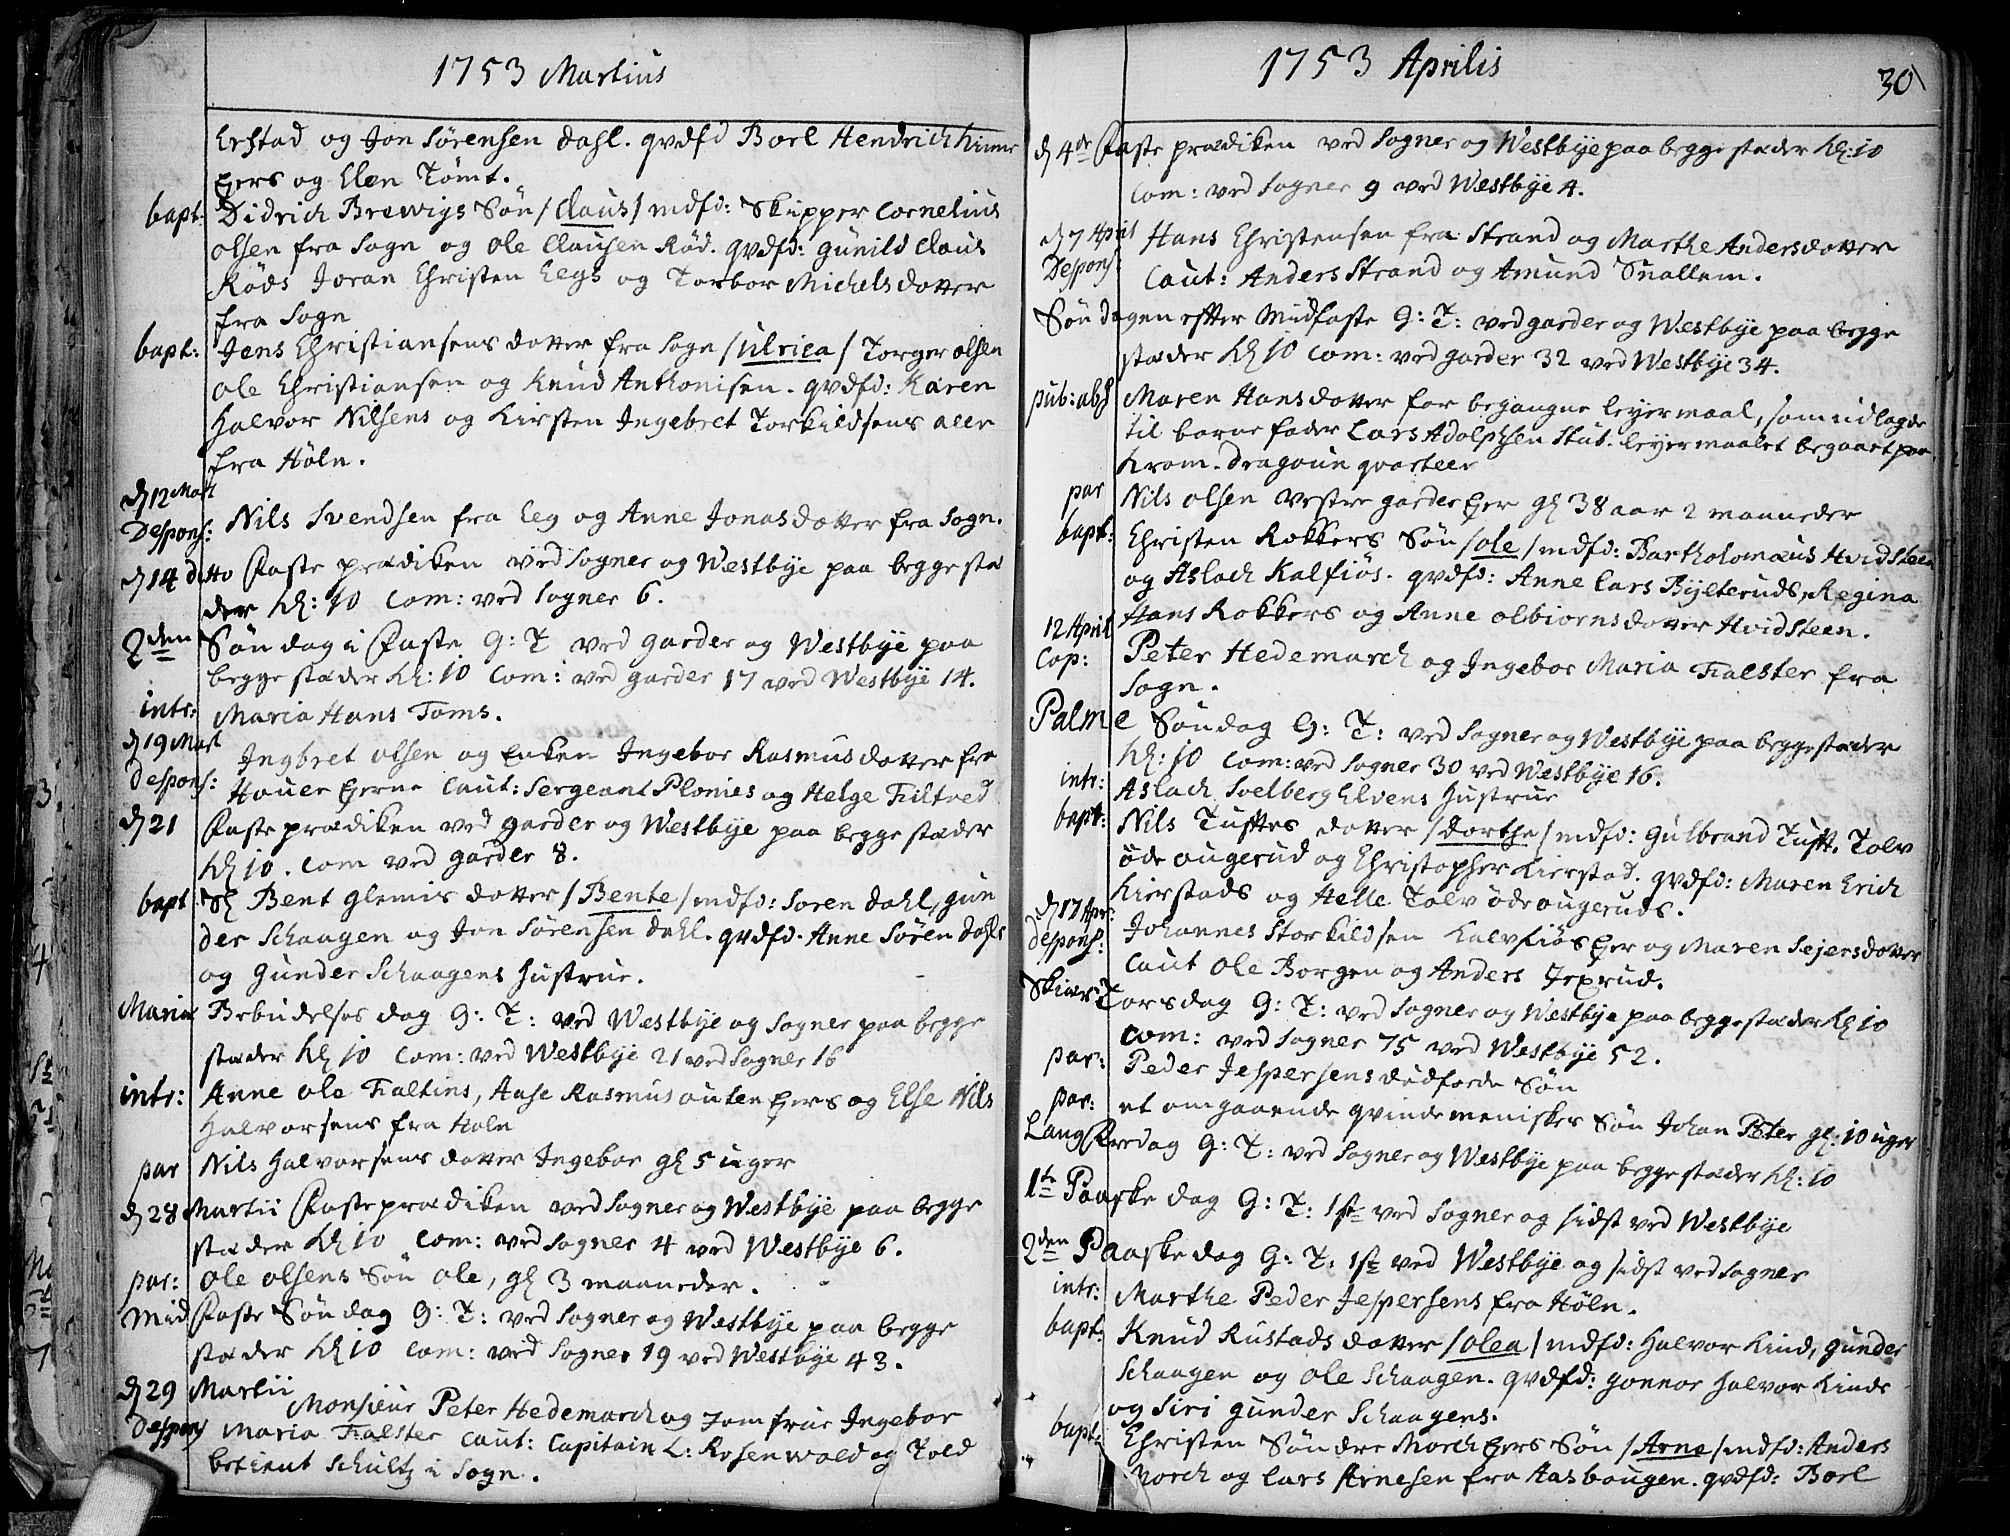 1753 Martius
Erstad og Jon Sørensen Dahl. qvdfd Borl Hendrich
Eiers og Elen Tømt.
bapt: Didrich Brewigs Søn /Claus/ mdfd: Skipper Cornelius
Olsen fra Sogn og Ole Clausen Rød. qvdfd: Gunild Claus
Røds Joran Christen Eegs og Torbor Michelsdotter
fra Sogn
bapt: Jens Christiansens dotter fra Sogn /Ulrica/ Torger Olsen
Ole Christiansen og Knud Anthonisen. qvdfd: Karen
Halvor Nilsens og Kirsten Ingebret Torkildsens alle
fra Høln.
d 12 Mart
Despons: Nils Svendsen fra Eeg og Anne Jonasdotter fra Sogn.
d 14 dito Faste prædiken ved Sogner og Westbye paa begge stæ
der Kl: 10 Com: ved Sogner 6.
2den Søndag i Faste G: T ved Garder og Westbye paa
begge stæder Kl: 10 Com: ved Garder 17 ved Westbye 14.
intr: Maria Hans Toms.
d 19 Mart
Despons: Ingbret Olsen og Enken Ingebor Rasmusdotter fra
Houer Eierne Caut: Sergeant Plonies og Helge Filtved
d 21 Fasteprædiken ved Garder og Westbye paa begge stæder
Kl 10. Com ved Garder 8.
bapt Sl Bent Glemis dotter /Bente/ mdfd: Soren Dahl, Gun
der Schaugen og Jon Sørensen Dahl. qvdfd. Anne Søren Dahls
og Gunder Schaagens Hustrue.
Mariæ Bebudelses dag G: T: ved Westbye og Sogner paa begge
stæder Kl 10 Com: ved Westbye 21 ved Sogner 16
intr: Anne Ole Faltins, Aase Rasmus Eiers og Else Nils
Halvorsens fra Høln
par Nils Halvorsens dotter Ingebor gl 5 uger
d 28 Martii Fasteprædiken ved Sogner og Westbye paa begge
stæder Kl 10 Com: ved Sogner 4 ved Westbye 6.
par: Ole Olsens Søn Ole, gl 3 maaneder.
Mid Faste Søndag G: T: ved Sogner og Westbye paa begge
stæder Kl 10 Com: ved Sogner 19 ved Westbye 43.
d 29 Martii
Despons Monsieur Peter Hedemarch og Jomfrue Ingebor
Maria Falster Caut: Capitain L: Rosenwold og Told
betient Schultz i Sogn.
1753 Aprilis
30
d 4de Faste prædiken ved Sogner og Westbye paa begge stæder Kl: 10
Com: ved Sogner 9 ved Westbye 4.
d 7 April
Despons: Hans Christensen fra Strand og Marthe Andersdotter
Caut: Anders Strand og Amund Snallem.
Søndagen efter Midfaste G: T: ved Garder og Westbye paa begge
stæder Kl 10 Com: ved Garder 32 ved Westbye 34.
pub: abs Maren Hansdotter for begangne leyermaal, som udlagde
til barne fader Lars Adolphsen Stub: leyermaalet begaaet paa
Krom. Dragoun qvarteer
par Nils Olsen Vestre Garder Eier gl 38 aar 2 maaneder
bapt: Christen Rokkers Søn /Ole/ mdfd: Bartholomæus Hvidsteen
og Aslach Kalfiøs. qvdfd: Anne Lars Bylteruds, Regina
Hans Rokkers og Anne Olbiornsdotter Hvidsteen.
12 April
Cop: Peter Hedemarch og Ingebor Maria Falster fra
Sogn.
Palme Søndag G: T: ved Sogner og Westbye paa begge stæder
Kl: 10 Com: ved Sogner 30 ved Westbye 16.
intr: Aslach Soelberg Elvens Hustrue
bapt: Nils Tufftes dotter /Dorthe/ mdfd: Gulbrand Tufft. Tolv
Ødeougerud og Christopher Kierstad. qvdfd: Maren Erich
Kierstads og Helle Tolv Ødeougeruds.
d 17 Apr:
Despons: Johannes Storkildsen Kalvfiøs Eier og Maren Sejersdotter
Caut Ole Borgen og Anders Jexrud.
Skiær Torsdag G: T: ved Sogner og Westbye paa begge stæder Kl 10
Com: ved Sogner 75 ved Westbye 52.
par: Peder Jespersens dødfødde Søn
par: et omgaaende qvindemeniskes Søn Johan Peter gl: 10 uger
Lang Fredag G: T: ved Sogner og Westbye paa begge stæder Kl: 10
1te Paaske dag G: T: 1ste ved Sogner og sidst ved Westbye
2den Paaske dag G: T: 1ste ved Westbye og sidst ved Sogner
intr: Marthe Peder Jespersens fra Høln.
bapt: Knud Rustads dotter /Olea/ mdfd: Halvor Kind, Gunder
Schaagen og Ole Schaagen. qvdfd: Gonnor Halvor Kinds
og Siri Gunder Schaagens.
bapt: Christen Søndre Morch Eiers Søn /Arne/ mdfd: Anders
Morch og Lars Arnesen fra Aasbougen. qvdfd: Borl